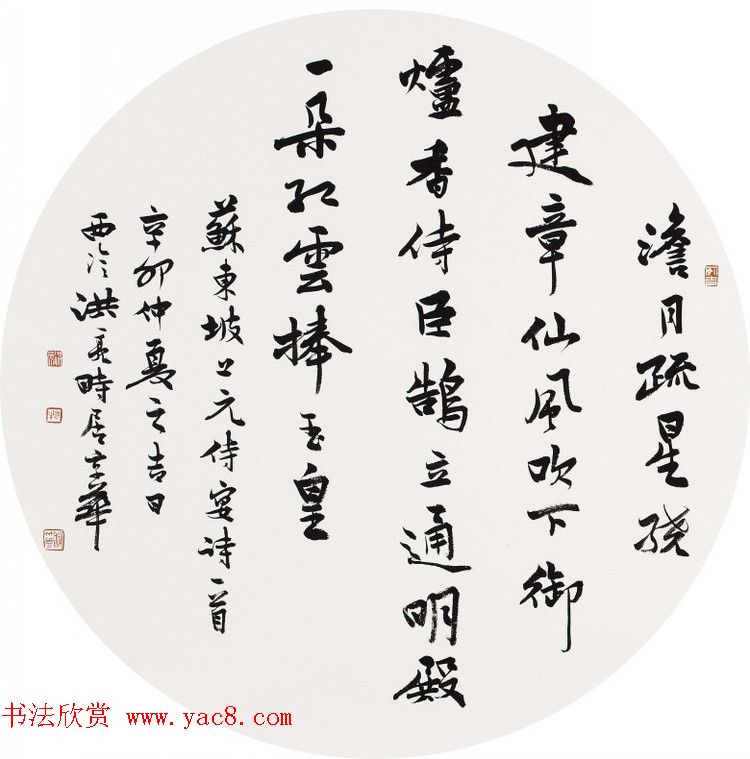 澹月疏星繞
建章仙風吹下御
爐香侍臣鵠立通明殿
一朵紅雲捧玉皇
蘇東坡上元侍宴詩一首
辛卯仲夏之吉日
西泠洪亮時居京華
书法欣赏 www.yac8.com